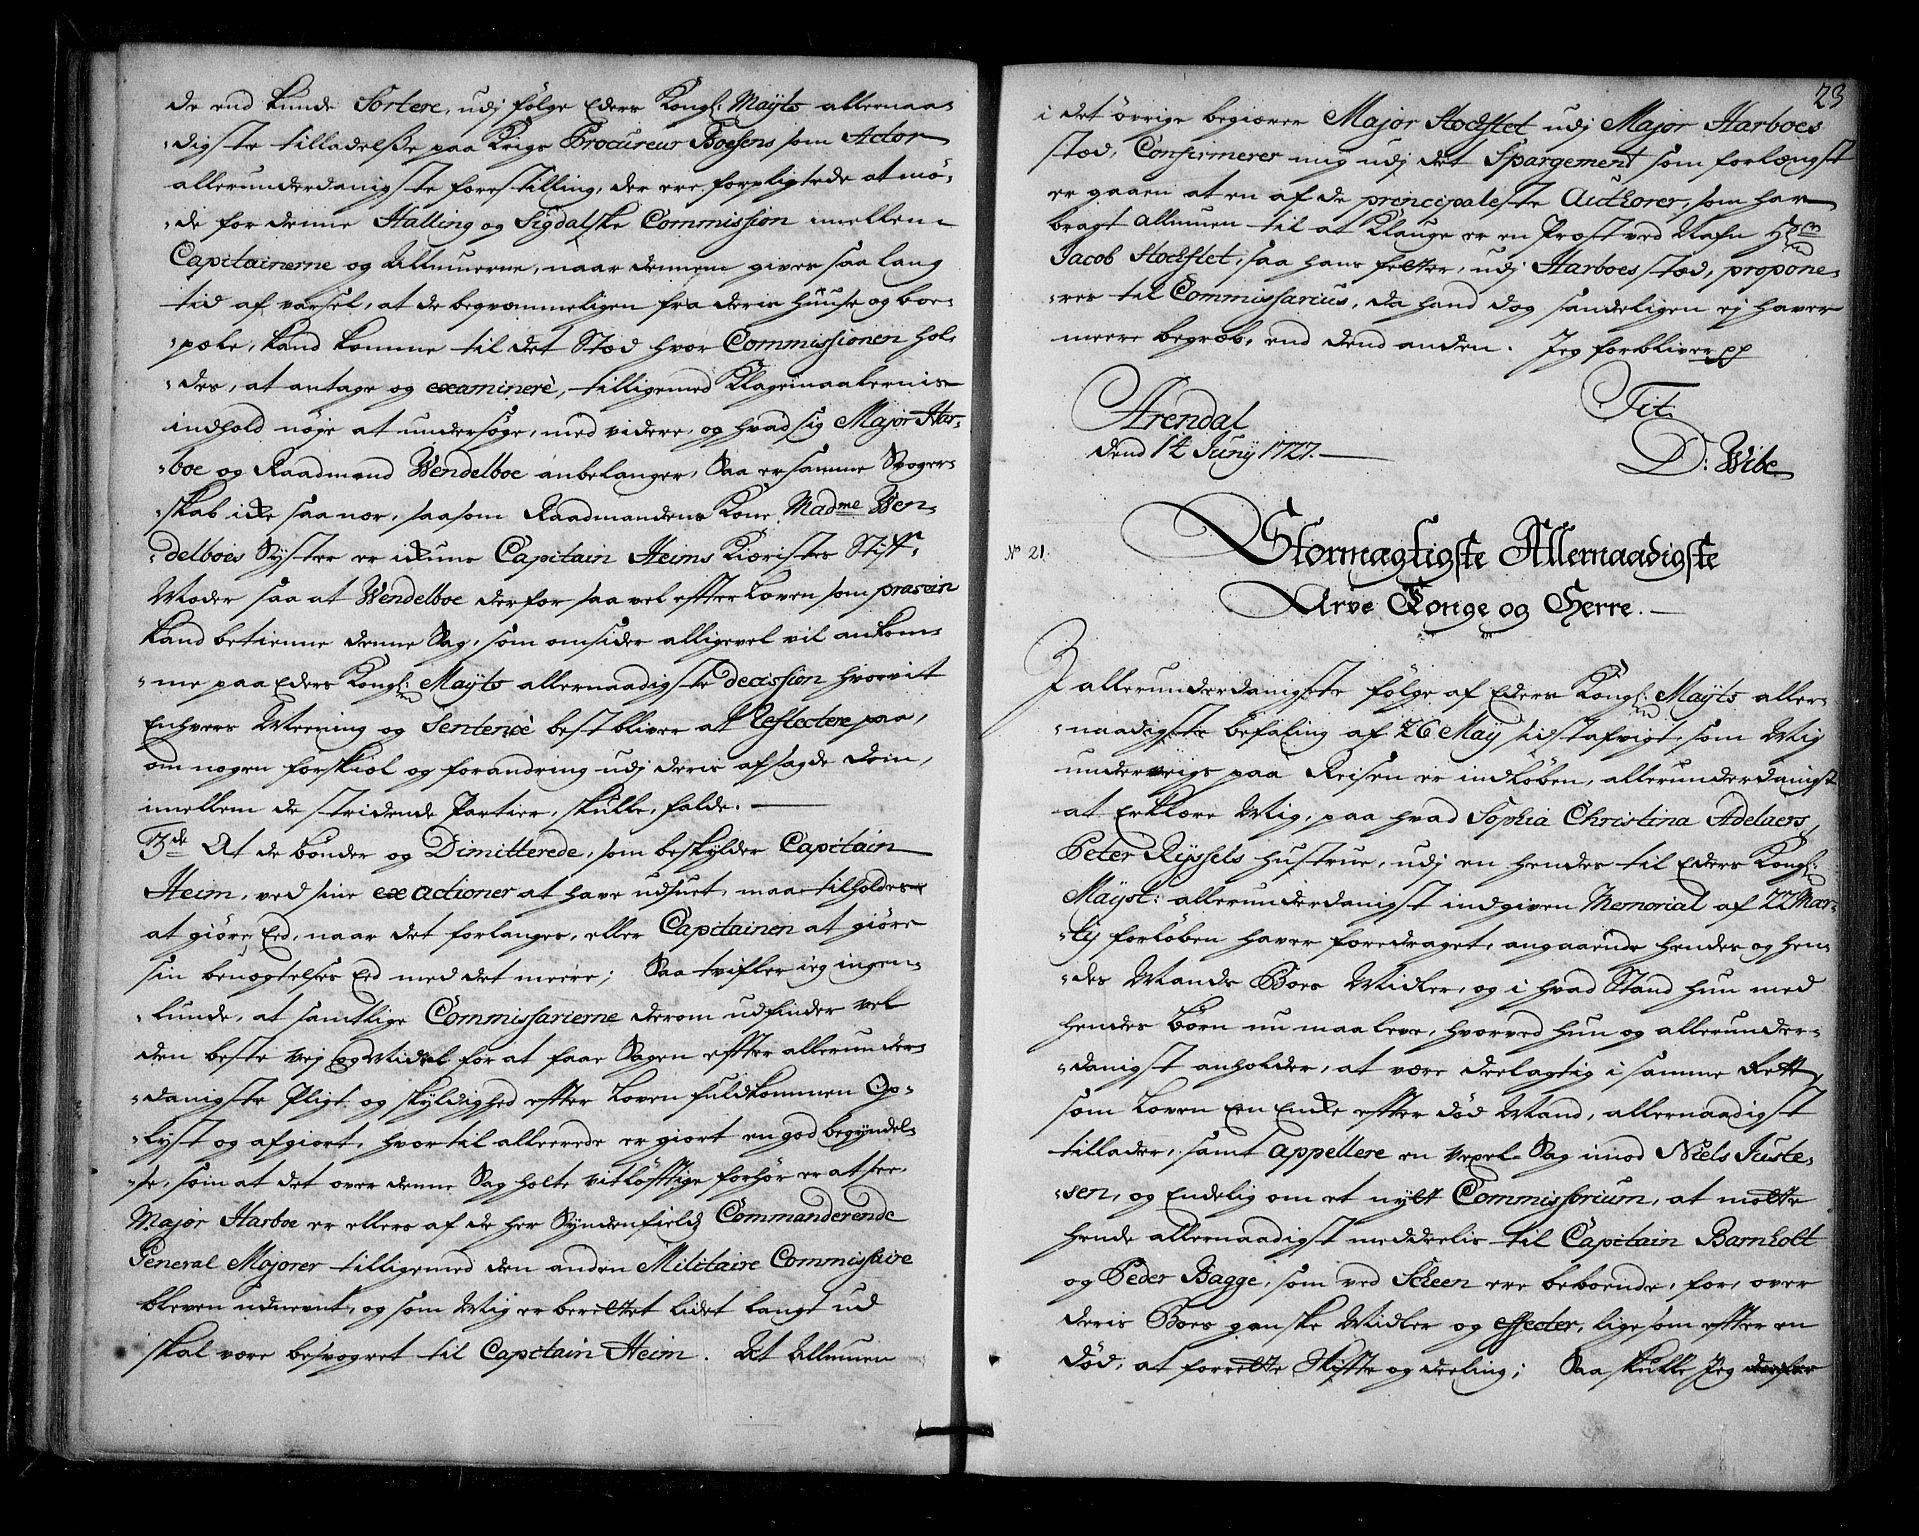 de end kunde Sortere, udj følge Eders Kongl: Maÿts allernaa-
digste tilladelße paa Krigs Procureur Boesens som Actor
allerunderdanigste forestilling, der ere forpligtede at mö-
de for denne Halling og Sigdalske Commission imellem
Capitainerne og Allmuerne, naar dennem gives saa lang
tid af varsel, at de begvemmeligen fra deris Huuse og boe-
pæle, kand komme til det Stæd hvor Commissionen hol-
des, at antage og examinere, tilligemed Klagemaalernis
indhold nöje at undersöge, med videre, og hvad sig Major Har-
boe og Raadmand Wendelboe anbelanger, Saa er samme Svoger-
skab icke saa nær, saasom Raadmandens Kone, Madme Wen-
delboes Syster er ickun Capitain Heims Kiæristes Stiff-
Moder saa at Wendelboe derfor saa vel effter Loven som
kand betienne denne Sag, som omsider alligevel vil ankom-
me paa Eders Kongl: Maÿts allernaadigste decission hvorvit
Enhvers Meening og Sentence best bliver at Reflectere paa,
om nogen forskiæl og forandring udj deris afsagde dom,
imellem de stridende Partier, skulle falde.
3de At de bönder og Dimitterede, som beskylder Capitain
Heim, ved sine exactioner at have udsuet, maa tilholdes
at giöre Eed, naar det forlanges, eller Capitainen at giöre
sin benægtelses Eed med det meere; Saa tvifler ieg ingen-
lunde, at samtlige Commissarierne derom udfinder vel
den beste Vej og Middel for at faae Sagen effter allerunder-
danigste Pligt og skyldighed effter Loven fuldkommen Op-
lyst og afgiort, hvortil allerede er giort en god begyndel-
se, som at det over denne Sag holte vitlöfftige forhör er at see,
Major Harboe er ellers af de her Syndenfields Commanderende
General Majorer tilligemed den anden Militaire Commissaire
bleven udnevnt, og som Mig er berettet lidet langt ud
skal være besvogret til Capitain Heim. At Allmuen
23
i det övrige begiærer Major Stockflet udj Major Harboes
stæd, Confirmerer mig udj det Spargement som forlængst
er gaaen at en af de principaleste Authorer, som har
bragt Allmuen til at Klauge er en Præst ved Nafn Hrn
Jacob Stockflet, saa hans fetter, udj Harboes stæd, propone-
res til Commissarius, da hand dog sandeligen ej haver
meere begreb, end dend anden. Jeg forbliver pp
Arendal Tit.
dend 14 Junij 1727. D: Wibe
No 21. Stormægtigste Allernaadigste
Arve Konge og Herre.
I allerunderdanigste følge af Eders Kongl: Maÿts aller-
naadigste befaling af 26 Maÿ sidstafvigt, som Mig
underveigs paa Reisen er indløben, allerunderdanigst
at Erklære Mig, paa hvad Sophia Christina Adelaers,
Peter Rÿssels Hustrue, udj en hendes til Eders Kongl:
Maÿst: allerunderdanigst indgiven Memorial af 22 Mar-
tij forløben haver foredraget, angaaende hendes og hen-
des Mands Boes Midler, og i hvad Stand hun med
hendes börn nu maa leve, hvorved hun og allerunder-
danigst anholder, at være deelagtig i samme Rett,
som Loven Een Enke effter död Mand, allernaadigst
tillader, samt appellere en Vexel-Sag imod Niels Juste-
sen, og Endelig om et nytt Commissorium, at motte
hende allernaadigst meddeelis til Capitain Barnholt
og Peder Bagge, som ved Scheen ere beboende, for, over
deris Boes ganske Midler og effecter, lige som effter en
död, at forrette Skiffte og deeling; Saa skulle Jeg